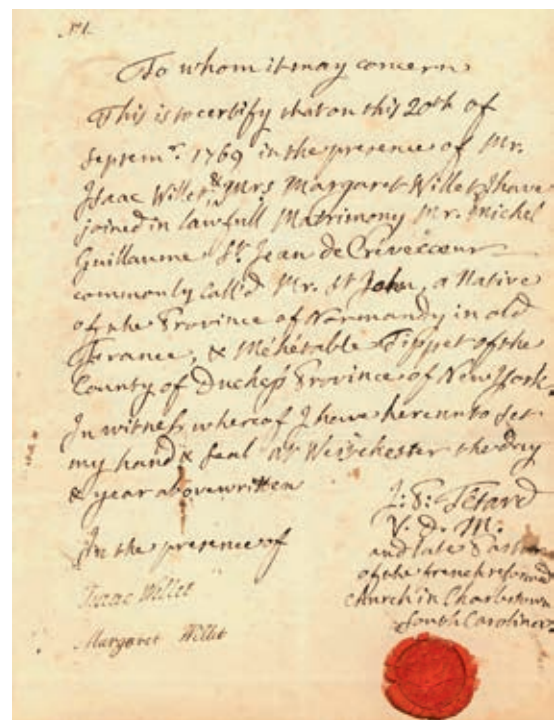 No 1.
To whom it may concern
This is to certify that on this 20th of
Septemr. 1769 in the presence of Mr.
Isaac Willet & Mrs Margaret Willet I have
joined in lawfull Matrimony Mr. Michel
Guillaume St. Jean de Crèvecœur
commonly call'd Mr. St John, a Native
of the Province of Normandy in old
France, & Méhétable Tippet of the
County of Duchess Province of New York.
In witness whereof I have hereunto set
my hand & seal at Weschester the day
& year above written
In the presence of
Isaac Willet
Margaret Willet
J: P: Tétard
V. D. M.
and late Pastor
of the french reformed
church in Charlestown
South Carolina